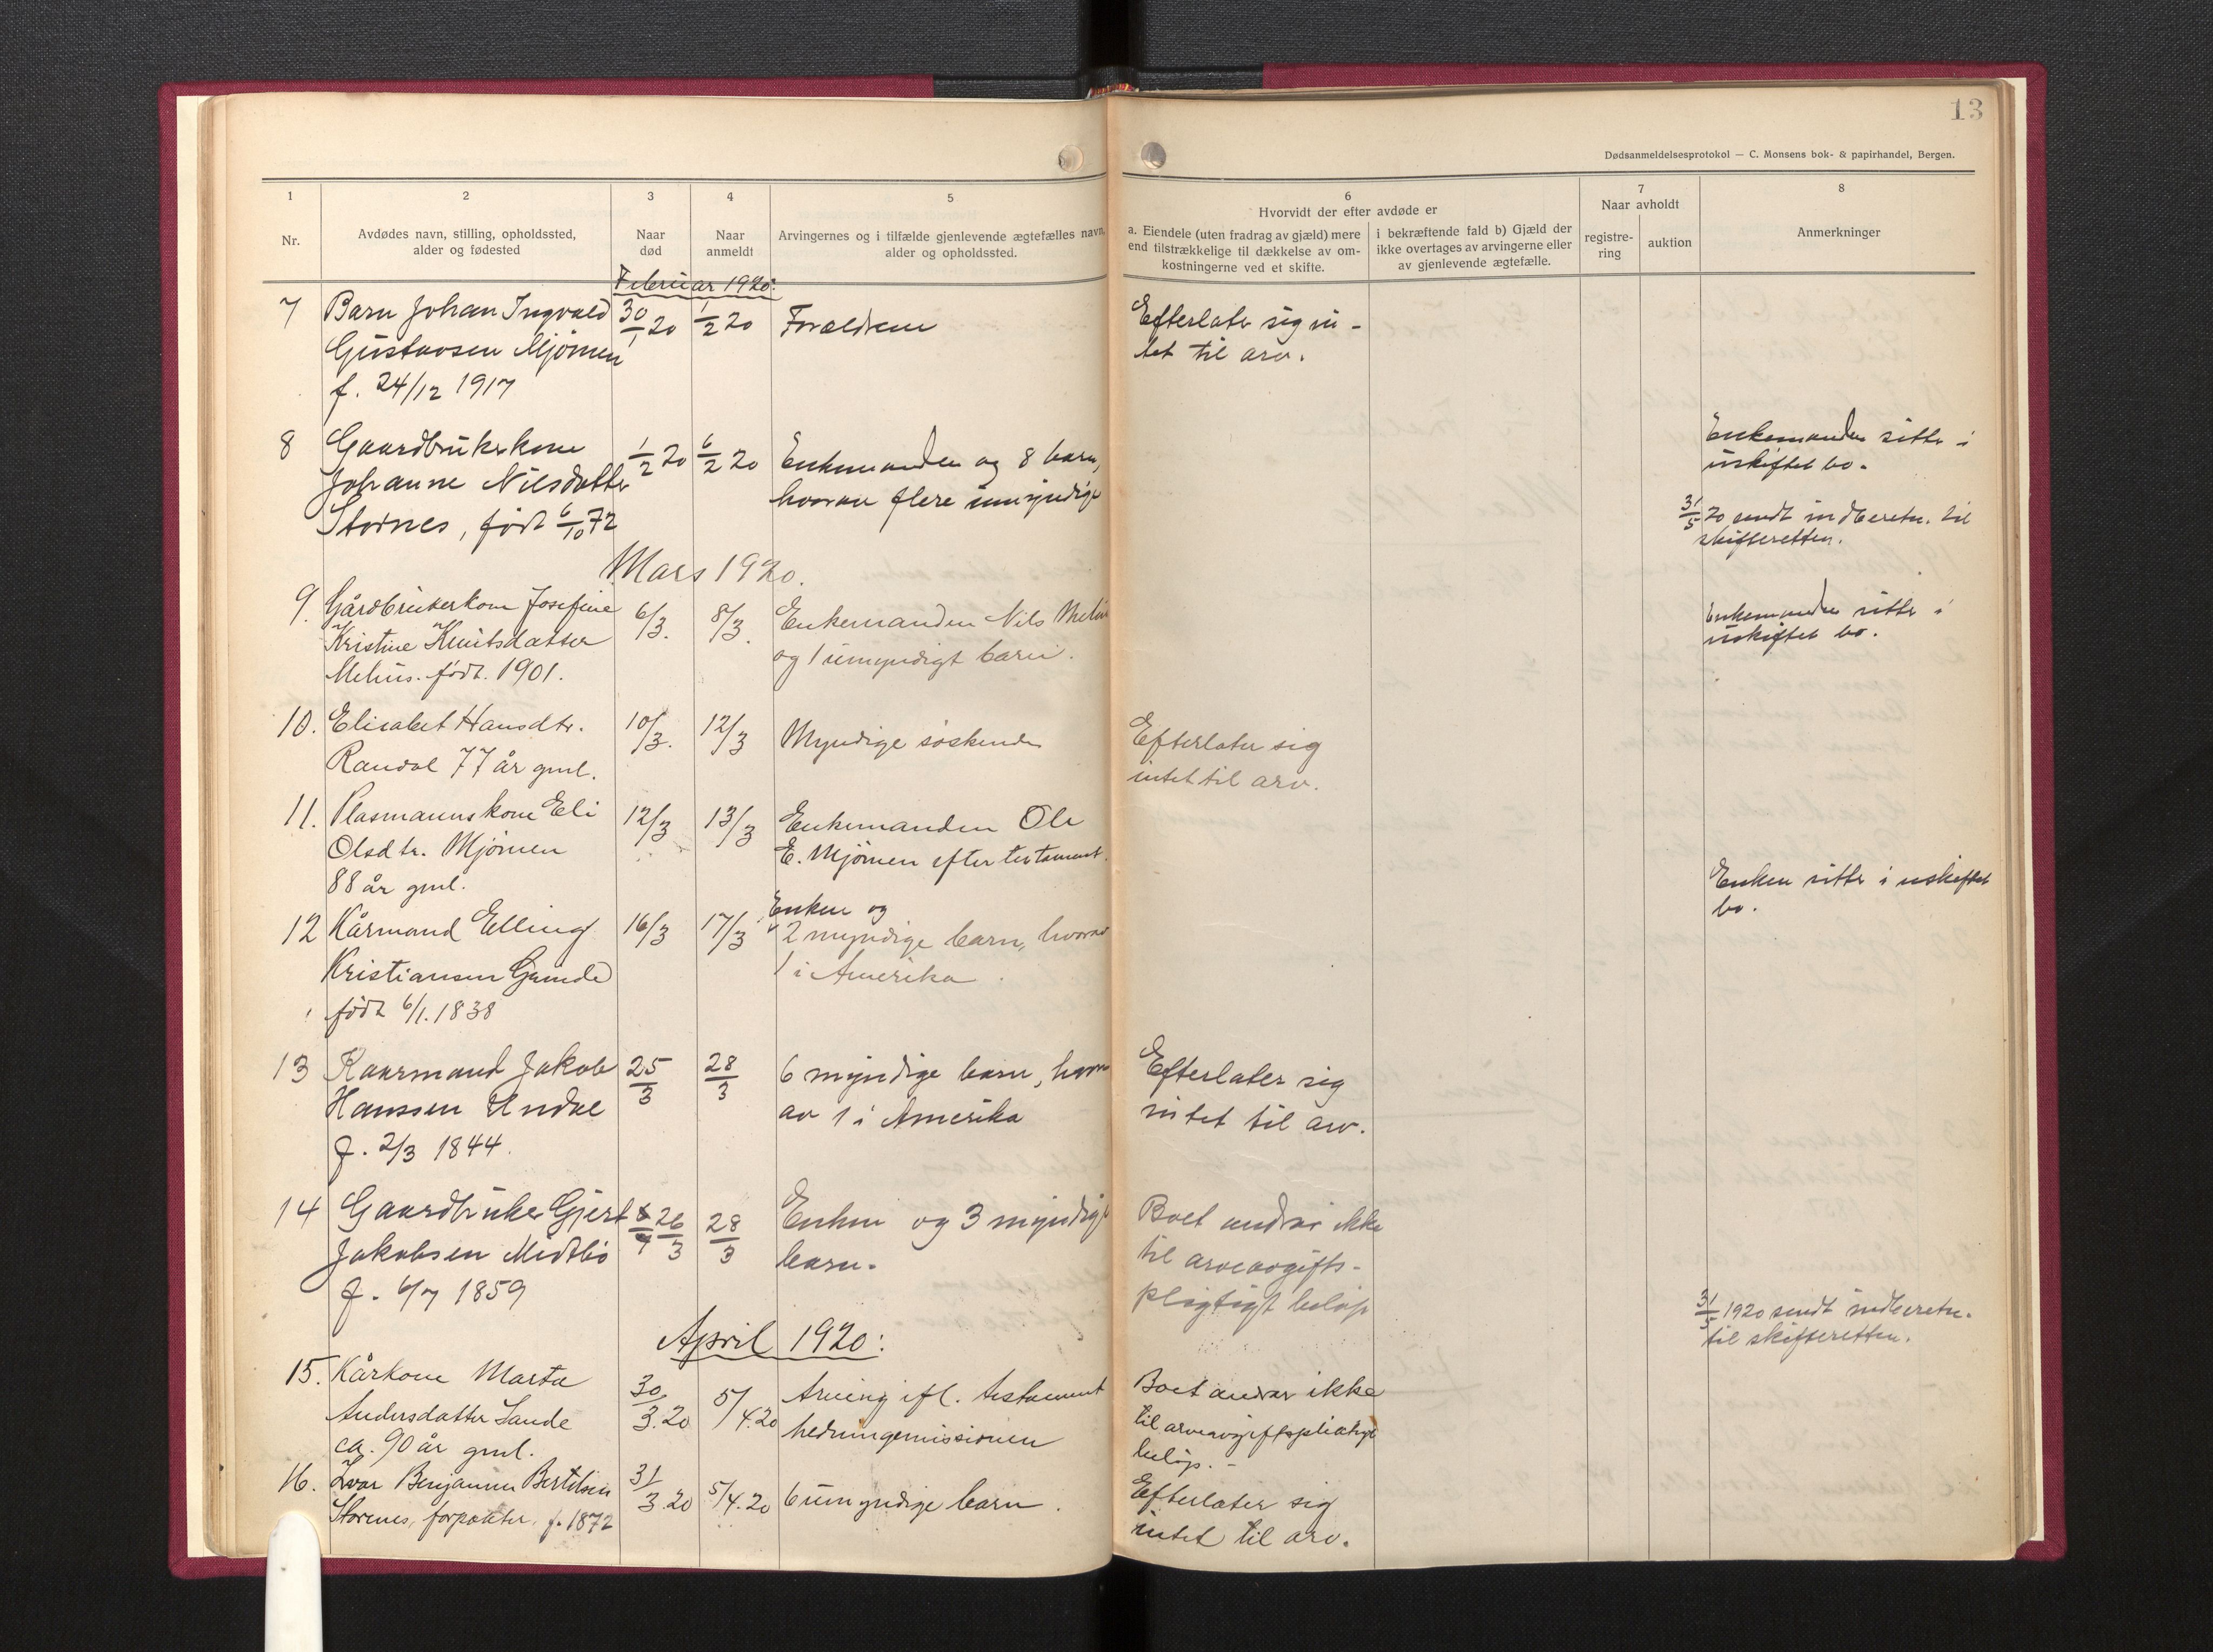 13
Dødsanmeldelsesprotokol — C. Monsens bok- & papirhandel, Bergen.
1
Nr.
2
Avdødes navn, stilling, opholdssted,
alder og fødested
3
Naar
død
4
Naar
anmeldt
5
Arvingernes og i tilfælde gjenlevende ægtefælles navn,
alder og opholdssted.
6
Hvorvidt der efter avdøde er
a. Eiendele (uten fradrag av gjæld) mere
end tilstrækkelige til dækkelse av om-
kostningerne ved et skifte.
i bekræftende fald b) Gjæld der
ikke overtages av arvingerne eller
av gjenlevende ægtefælle.
7
Naar avholdt
registre-
ring
auktion
8
Anmerkninger
Februar 1920:
7 Barn Johan Ingvald 30/1 20 1/2 20 Forældrene Efterlater sig in-
Gustavsen Mjömen tet til arv.
f. 24/12 1917
8 Gaardbrukerkone 1/2 20 6/2 20 Enkemanden og 8 barn, Enkemanden sitter i
Johanne Nilsdatter hvorav flere umyndige uskiftet bo.
Stornes, født 6/10 72 31/5 20 sendt indberetn. til
skifteretten.
Mars 1920.
9. Gårdbrukerkone Josefine 6/3. 8/3. Enkemanden Nils Mehus Enkemanden sitter i
Kristine Knutsdatter og 1 umyndigt barn. uskiftet bo.
Mehus. født. 1901.
10. Elisabet Hansdtr. 10/3. 12/3 Myndige søskende Efterlater sig
Randal 77 år gml. intet til arv.
11. Plasmannskone Eli 12/3 13/3 Enkemanden Ole
Olsdtr. Mjömen E. Mjömen efter testament.
88 år gml. Enken sitter i uskiftet
bo.
Enken og
12 Kårmand Elling 16/3 17/3 2 myndige barn, hvorav
Kristiansen 1 i Amerika
født 6/1. 1838
13 Kaarmand Jakob 25/3 28/3 6 myndige barn, hvor Efterlater sig
Hanssen Undal av 1 i Amerika intet til arv.
f. 2/3 1844.
14 Gaardbruker Gjert 26/3 28/3 Enken og 3 myndige Boet andrar ikke
Jakobsen Midtbö barn. til arveavgifts-
f. 6/7 1859 pligtigt belöp
31/5 1920 sendt indberetn.
til skifteretten.
April 1920:
15. Kårkone Marta 30/3.20 5/4.20 Arving ifl. testament Boet andrar ikke
Andersdatter Sande hedningemissionen til arveavgiftspliktige
ca. 90 år gml. belöp.-
16. Ivar Benjamin Bertelsen 31/3.20 5/4.20 6 umyndige barn. Efterlater sig
Storenes, forpakter, f. 1872 intet til arv.